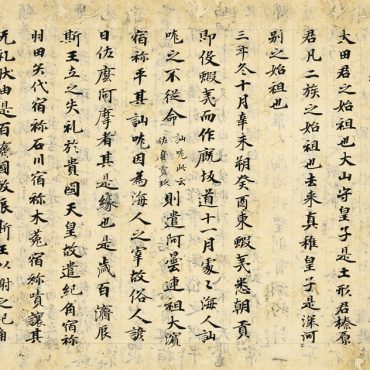 太田君之始祖也大山守皇子是土形君榛原
君凡二族之始祖也去来真稚皇子是深河
別之始祖也
三年冬十月辛未朔癸酉東蝦夷悉朝貢
即役蝦夷而作厩坂道十一月處〻海人訕
哤之不従命訕哤此云佐麼賣玖則遣阿曇連祖大濱
宿祢平其訕哤因為海人之宰故俗人諺
曰佐麼阿摩者其是縁也是歳百濟辰
斯王立之失礼於貴國天皇故遣紀角宿祢
羽田矢代宿祢石川宿祢木菟宿祢嘖讓其
无礼状由是百濟國殺辰斯王以謝之紀角